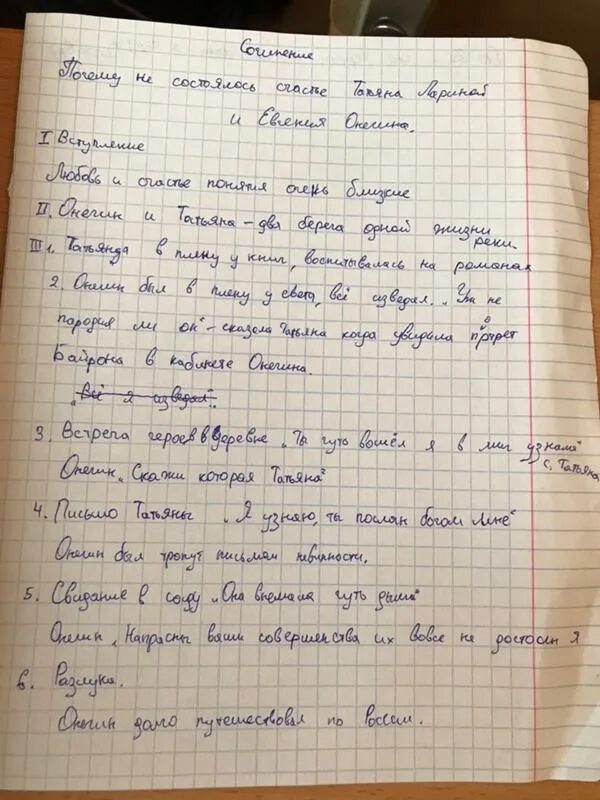 Сочинение
Почему не состоялось счастье Татьяна Лариной
и Евгения Онегина.
I Вступление
Любовь и счастье понятия очень близкие
II. Онегин и Татьяна - два берега одной жизни
реки.
III 1. Татьянда в плену у книг, воспитывалась на романах
2. Онегин был в плену у света, всё изведал. „Уж не
пародия ли он" - сказала Татьяна когда увидила портрет
Байрона в кабинете Онегина.
„Всё я изведал".
3. Встреча героев в деревне „Ты чуть вошёл я в миг узнала"
с. Татьяна
Онегин „Скажи которая Татьяна"
4. Письмо Татьяны „Я узнаю, ты послан богом мне"
Онегин был тронут письмом невинности.
5. Свидание в саду „Она внемала чуть дыша"
Онегин „Напрасны ваши совершенства их вовсе не достоин я
6. Разлука.
Онегин долго путешествовал по России.